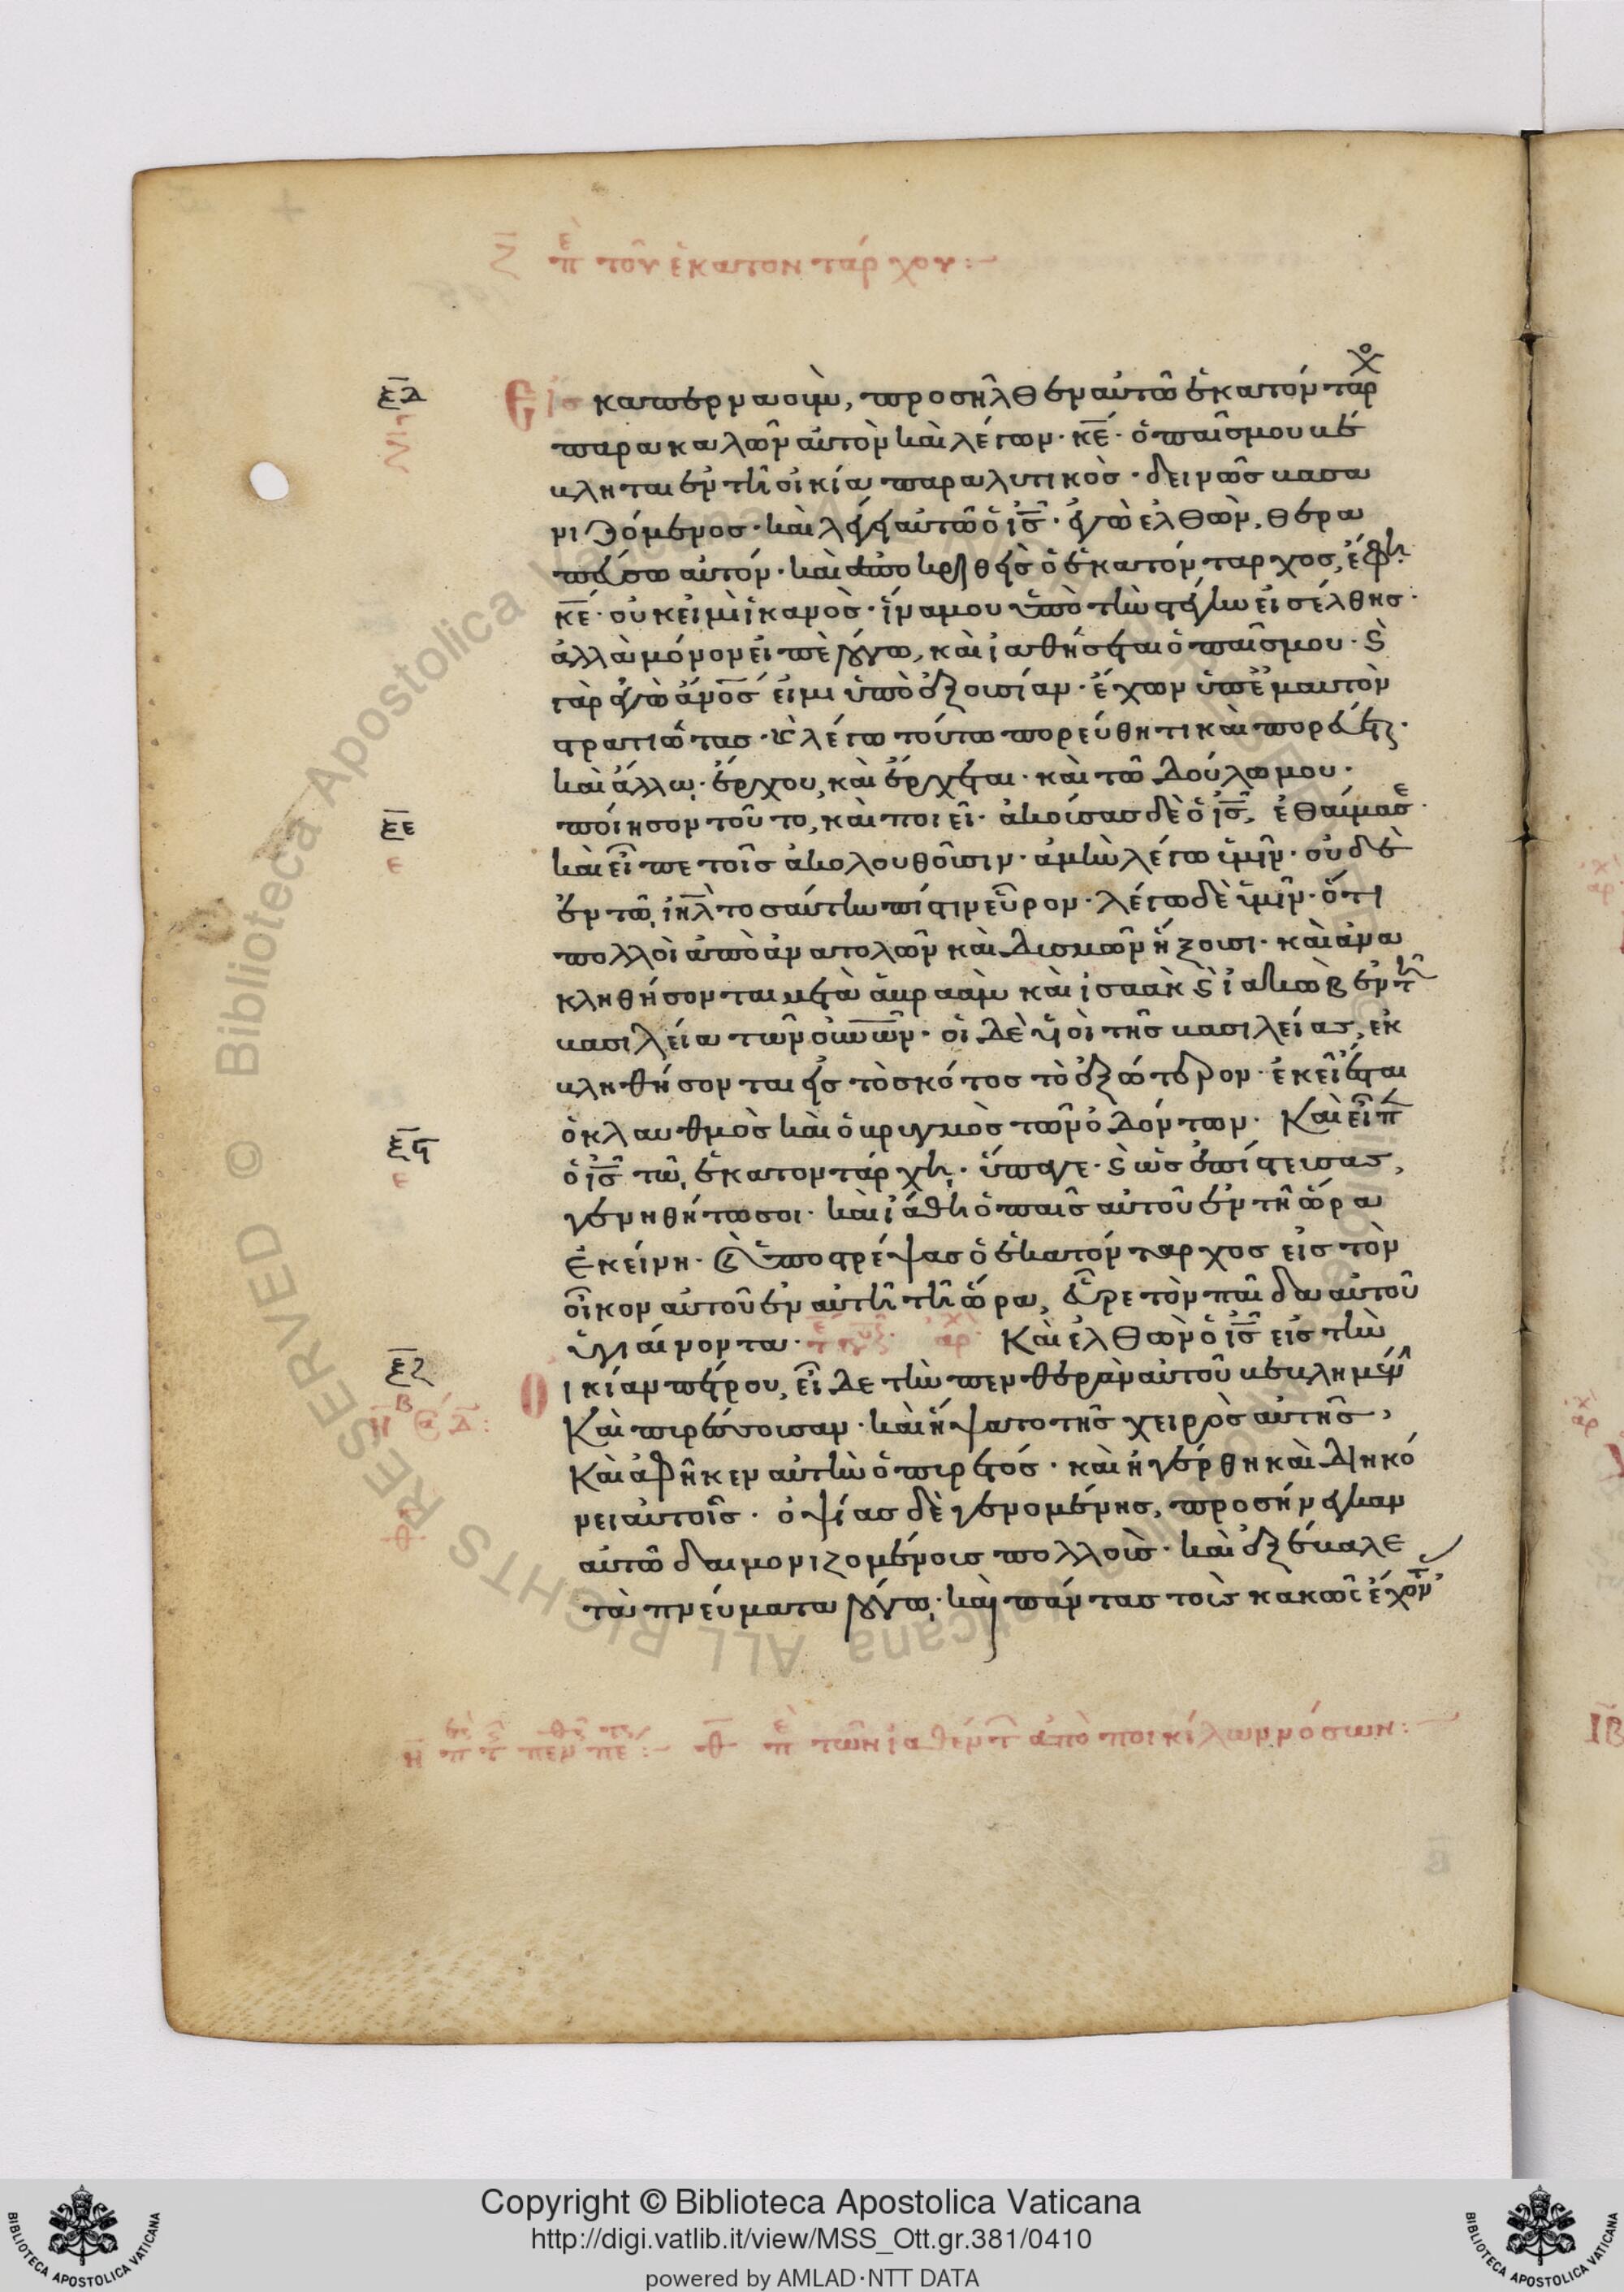 ζ πε τοῦ ἑκατοντάρχου:~
ξδ
Εἰς καπερναοὺμ, προσῆλθεν αὐτῶ ἑκατόνταρχο
παρακαλῶν αὐτὸν καὶ λέγων· κ̅ε̅· ὁ παῖς μου βέ
βληται ἐν τῆ οἰκία παραλυτικὸς· δεινῶς βασα
νιζόμενος· καὶ λέγει αὐτῶ ὁ ι̅ς̅· ἐγὼ ἐλθὼν, θερα
πεύσω αὐτόν· καὶ ἀποκριθεὶς ὁ ἑκατόνταρχος, ἔφη·
κ̅ε̅· οὐκ εἰμὶ ἱκανὸς· ἵνα μου ὑπὸ τὴν στέγην εἰσέλθης·
ἀλλὰ μόνον εἰπὲ λόγω, καὶ ἰαθήσεται ὁ παῖς μου· ϛ
γὰρ ἐγὼ ἄ̅ν̅ο̅ς̅ εἰμι ὑπὸ ἐξουσίαν· ἔχων ὑπ' ἐμαυτὸν
στρατιώτας· κ λέγω τούτω πορεύθητι καὶ πορεύεται·
καὶ ἄλλω· ἔρχου, καὶ ἔρχεται· καὶ τῶ δούλω μου·
ξε
ποίησον τοῦτο, καὶ ποιεῖ· ἀκούσας δὲ ὁ ι̅ς̅, ἐθαύμασε·
ε
καὶ εἶπε τοῖς ἀκολουθοῦσιν· ἀμὴν λέγω ὑμῖν· οὐδὲ
ἐν τῶ ι̅η̅λ̅ τοσαύτην πίστιν εὗρον· λέγω δὲ ὑμῖν· ὅτι
πολλοὶ ἀπὸ ἀνατολῶν καὶ δυσμῶν ἥξουσι· καὶ ἀνα
κληθήσονται μετὰ ἀβραὰμ καὶ ἰσαὰκ ϛ ἰακὼβ ἐν τῆ
βασιλεία τῶν ο̅υ̅ν̅ῶ̅ν̅· οἱ δὲ υἱοὶ τῆς βασιλείας, ἐκ
βληθήσονται εἰς τὸ σκότος τὸ ἐξώτερον· ἐκεῖ ἔσται
ξϛ
ὁ κλαυθμὸς καὶ ὁ βρυγμὸς τῶν ὀδόντων· Καὶ εἶπε
ε
ὁ ι̅ς̅ τῶ ἑκατοντάρχη· ὕπαγε· ϛ ὡς ἐπίστευσας,
γενηθήτω σοι· καὶ ἰάθη ὁ παῖς αὐτοῦ ἐν τῆ ὥρα
ἐκείνη· ϗ ὑποστρέψας ὁ ἑκατόνταρχος εἰς τὸν
οἶκον αὐτοῦ ἐν αὐτῆ τῆ ὥρα, εὗρε τὸν παῖδα αὐτοῦ
ὑγιαίνοντα· Καὶ ἐλθὼν ὁ ι̅ς̅ εἰς τὴν
ξζ
Οἰκίαν πέτρου, εἶδε τὴν πενθερὰν αὐτοῦ βεβλημένην
Καὶ πυρέσσουσαν· καὶ ἥψατο τῆς χειρὸς αὐτῆς,
Καὶ ἀφῆκεν αὐτὴν ὁ πυρετός· καὶ ἠγέρθη καὶ διηκό
νει αὐτοῖς· ὀψίας δὲ γενομένης, προσήνεγκαν
αὐτῶ δαιμονιζομένους πολλοὺς· καὶ ἐξέβαλε
τὰ πνεύματα λόγω· καὶ πάντας τοὺς κακῶς ἔχοντ
η πε τ πενθ πε:~ θ πε τῶν ἰαθέντ ἀπὸ ποικίλων νόσων:~
Copyright © Biblioteca Apostolica Vaticana
http://digi.vatlib.it/view/MSS_Ott.gr.381/0410
powered by AMLAD·NTT DATA